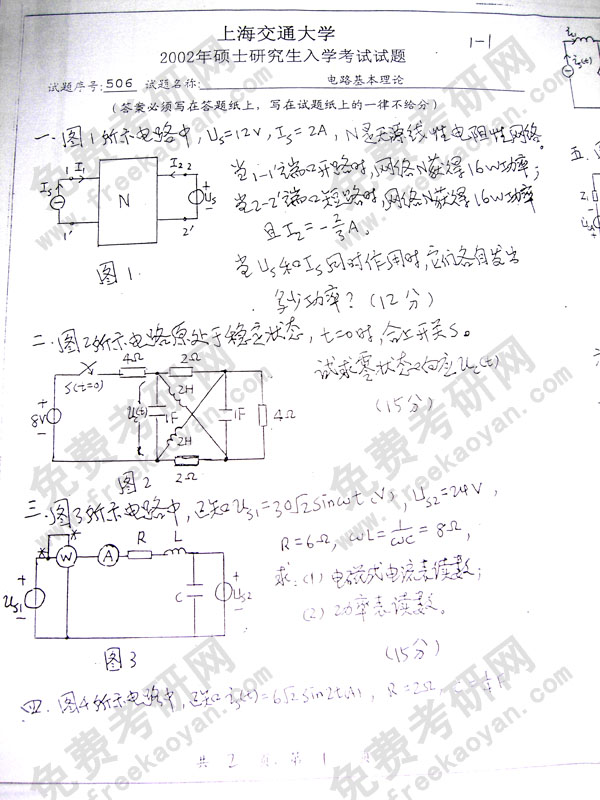 上海交通大学
2002年硕士研究生入学考试试题
1-1
试题序号: 506 试题名称: 电路基本理论
(答案必须写在答题纸上，写在试题纸上的一律不给分)
一.图1所示电路中, Us=12V, Is=2A, N是无源线性电阻性网络。
当1-1'端口开路时,网络N获得16W功率;
当2-2'端口短路时,网络N获得16W功率
且I2=-2/3A。
当Us和Is同时作用时,它们各自发出
多少功率? (12分)
Is 1 I1 N I2 2 + Us -
1' 2'
图1.
二.图2所示电路原处于稳定状态, t=0时,合上开关S。
试求零状态响应Uc(t)
(15分)
S(t=0) 4Ω 2Ω
+ 8V - Uc(t) 1F 2H 2H 1F 4Ω
2Ω
图2
三.图3所示电路中,已知Us1=30√2sinωt V, Us2=24V,
R=6Ω, ωL=1/ωC=8Ω,
求:(1)电磁式电流表读数;
(2)功率表读数。
(15分)
* * W A R L
+ Us1 - C + Us2 -
图3
四.图4所示电路中,已知is(t)=6√2sin2t(A), R=2Ω,
共 2 页 第 1 页
免费考研网
www.freekaoyan.com